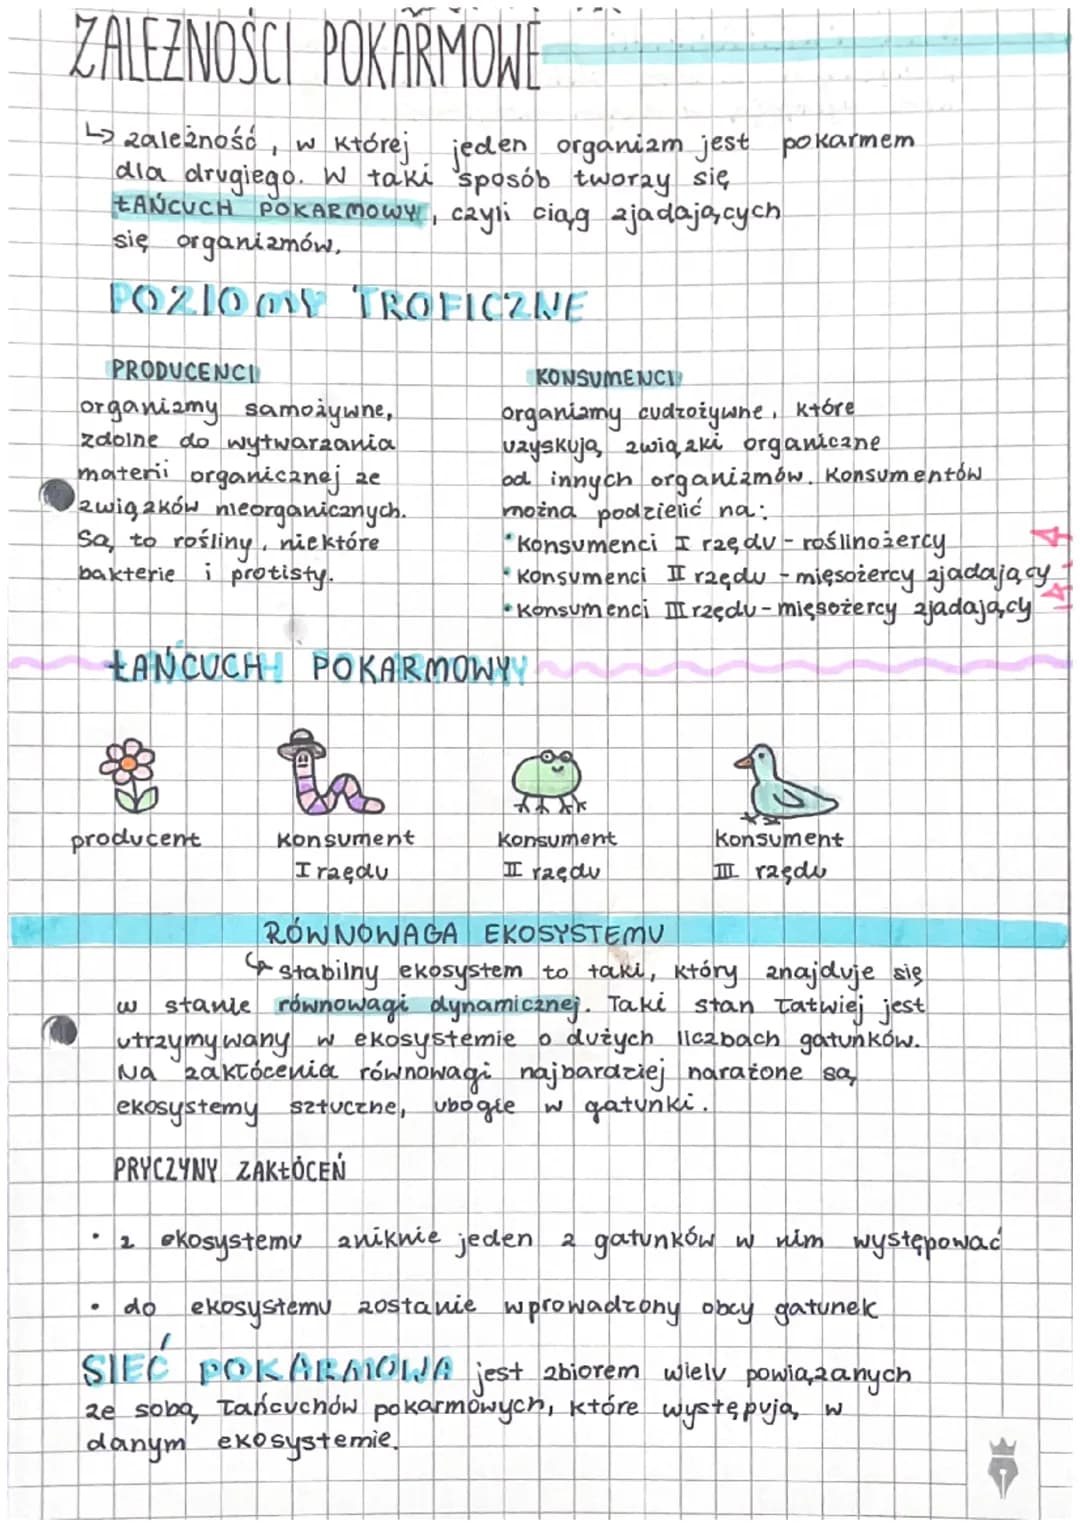 ZALEŻNOŚCI POKARMOWE
↳ zależność, w której jeden organizm jest pokarmem
dla drugiego. W taki sposób tworzy się
ŁAŃCUCH POKARMOWY, czyli ciąg zjadających
się organizmów.
POZIOMY TROFICZNE
PRODUCENCI
organizmy samożywne,
zdolne do wytwarzania
materii organicznej ze
związków nieorganicznych.
Są to rośliny, niektóre
bakterie i protisty.
KONSUMENCI
organizmy cudzożywne, które
uzyskują związki organiczne
od innych organizmów. Konsumentów
można podzielić na:
• Konsumenci I rzędu - roślinożercy
• Konsumenci II rzędu - mięsożercy zjadający
• Konsumenci III rzędu - mięsożercy zjadający
ŁAŃCUCH POKARMOWY
producent
konsument
I rzędu
konsument
II rzędu
konsument
III rzędu
RÓWNOWAGA EKOSYSTEMU
↳ stabilny ekosystem to taki, który znajduje się
w stanie równowagi dynamicznej. Taki stan łatwiej jest
utrzymywany w ekosystemie o dużych liczbach gatunków.
Na zakłócenia równowagi najbardziej narażone są
ekosystemy sztuczne, ubogie w gatunki.
PRYCZYNY ZAKŁÓCEŃ
• z ekosystemu zniknie jeden z gatunków w nim występować
• do ekosystemu zostanie wprowadzony obcy gatunek
SIEĆ POKARMOWA jest zbiorem wielu powiązanych
ze sobą łańcuchów pokarmowych, które występują w
danym ekosystemie.